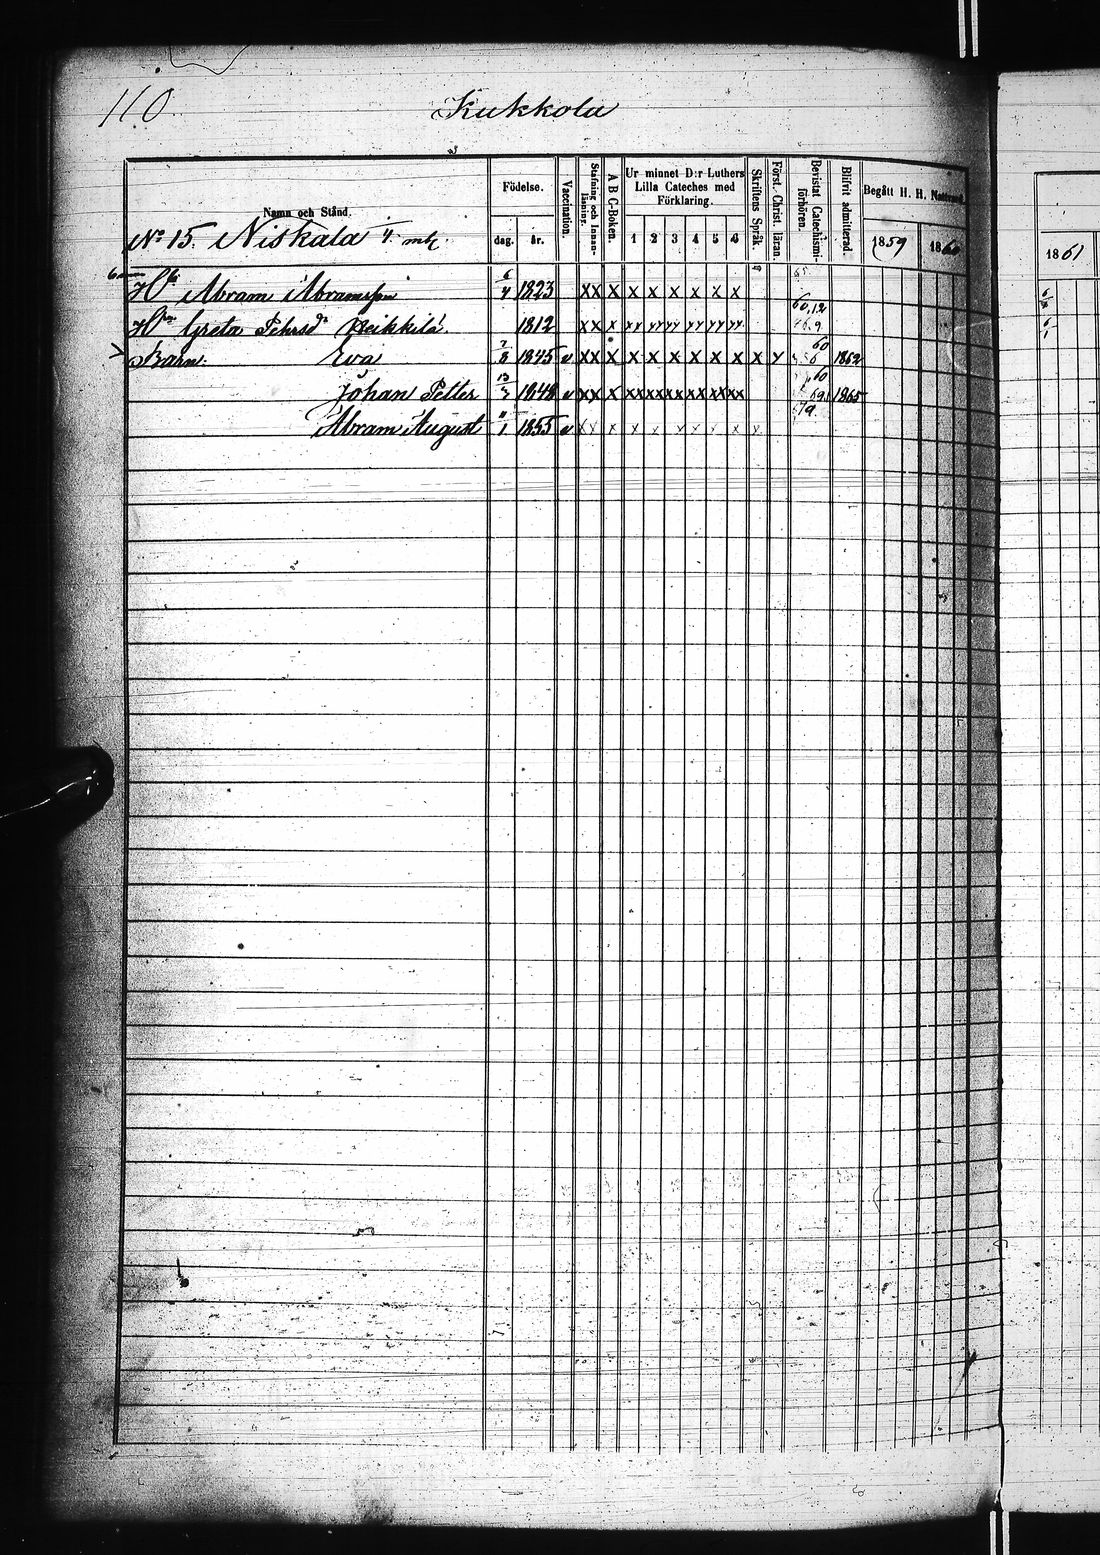 110. Kukkola
Namn och Stånd. Födelse. dag. år. Vaccination. Stafning och Innanläsning. A B C-Boken. Ur minnet D:r Luthers Lilla Cateches med Förklaring. 1 2 3 4 5 6 Skriftens Språk. Först. Christ läran. Bevistat Catechismiförhören. Blifvit admitterad. Begått H. H. Nattvard. 1859 1860 1861
No 15. Niskala
Abram Abramsson 6/4 1823 x x x x x x x x x 65
Greta Pehrsdr Heikkilä 1812 x x x 60,12
Barn. Eva 7/8 1845 v x x x x x x x x x x 60 1862
Johan Petter 13/3 1848 v x x x 60 1865
Abram August 11/1 1855 v x x x x x x x x x